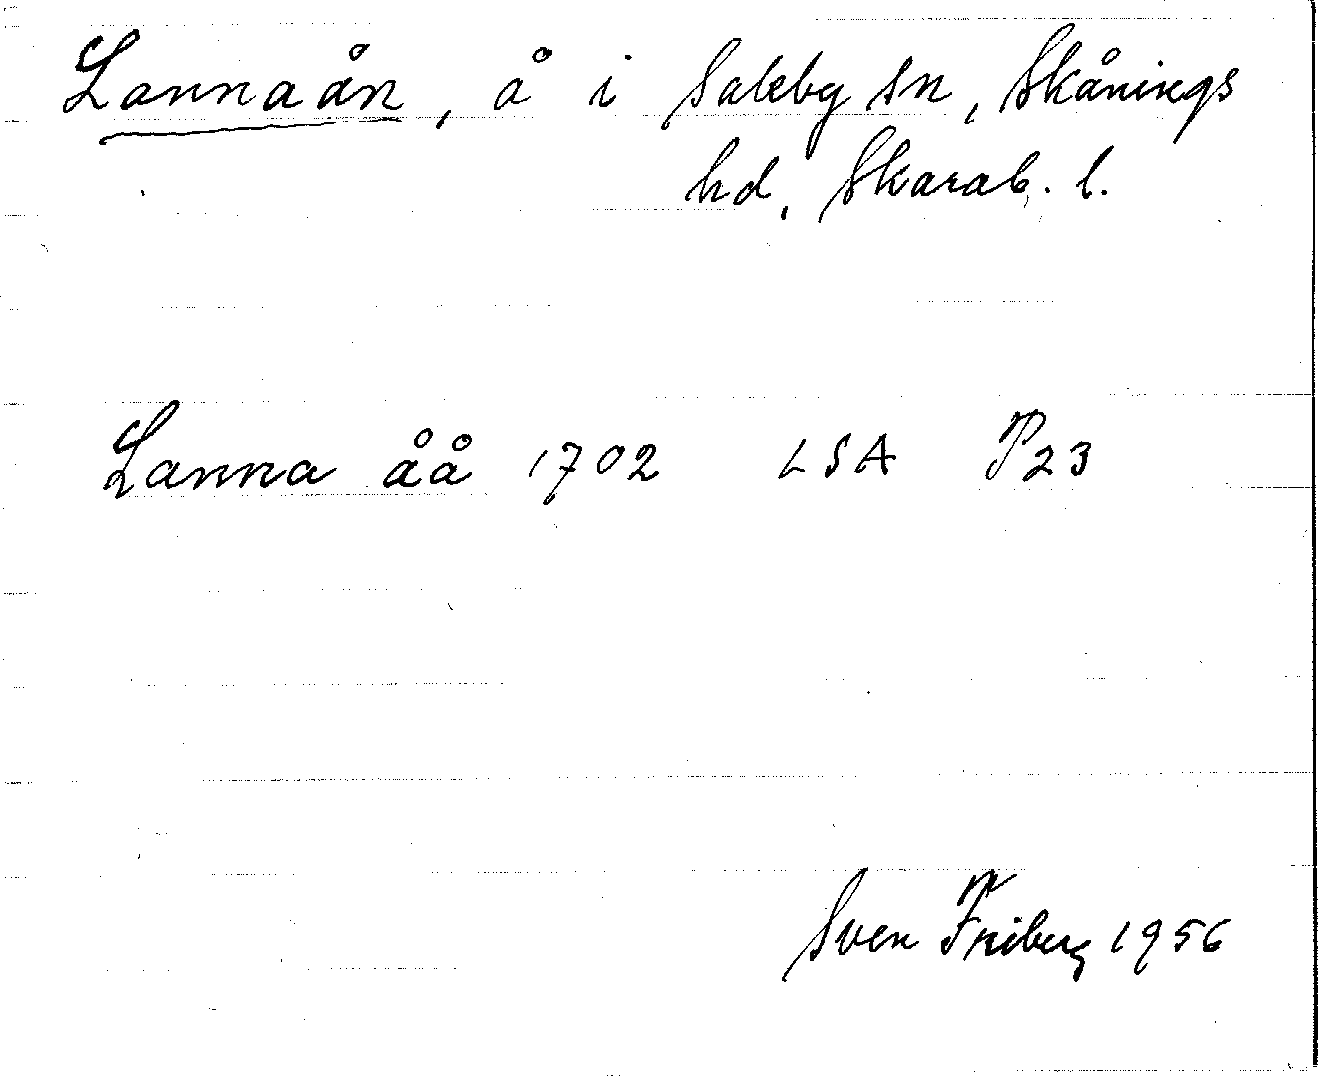 Lannaån, å i Saleby sn, Skånings
hd, Skarab. l.
Lanna åå 1702 LSA P23
Sven Friberg 1956